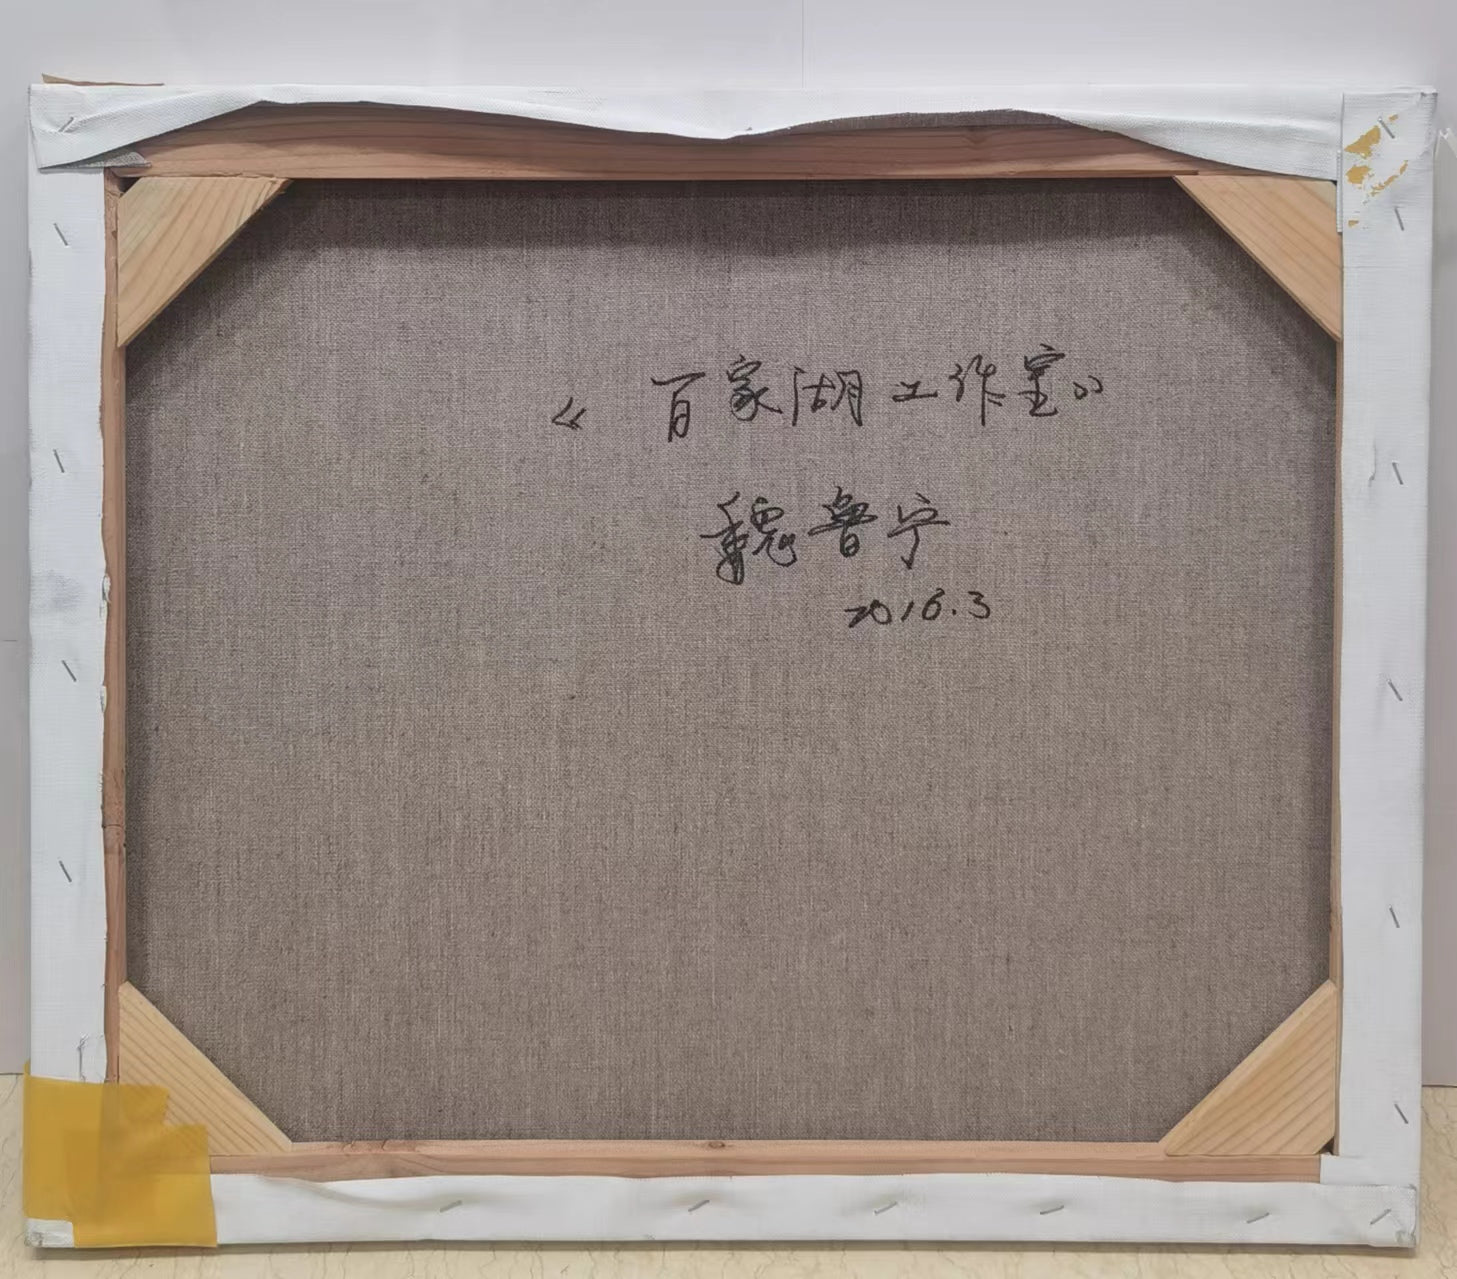 《百家湖工作室》
魏鲁宁
2016.3